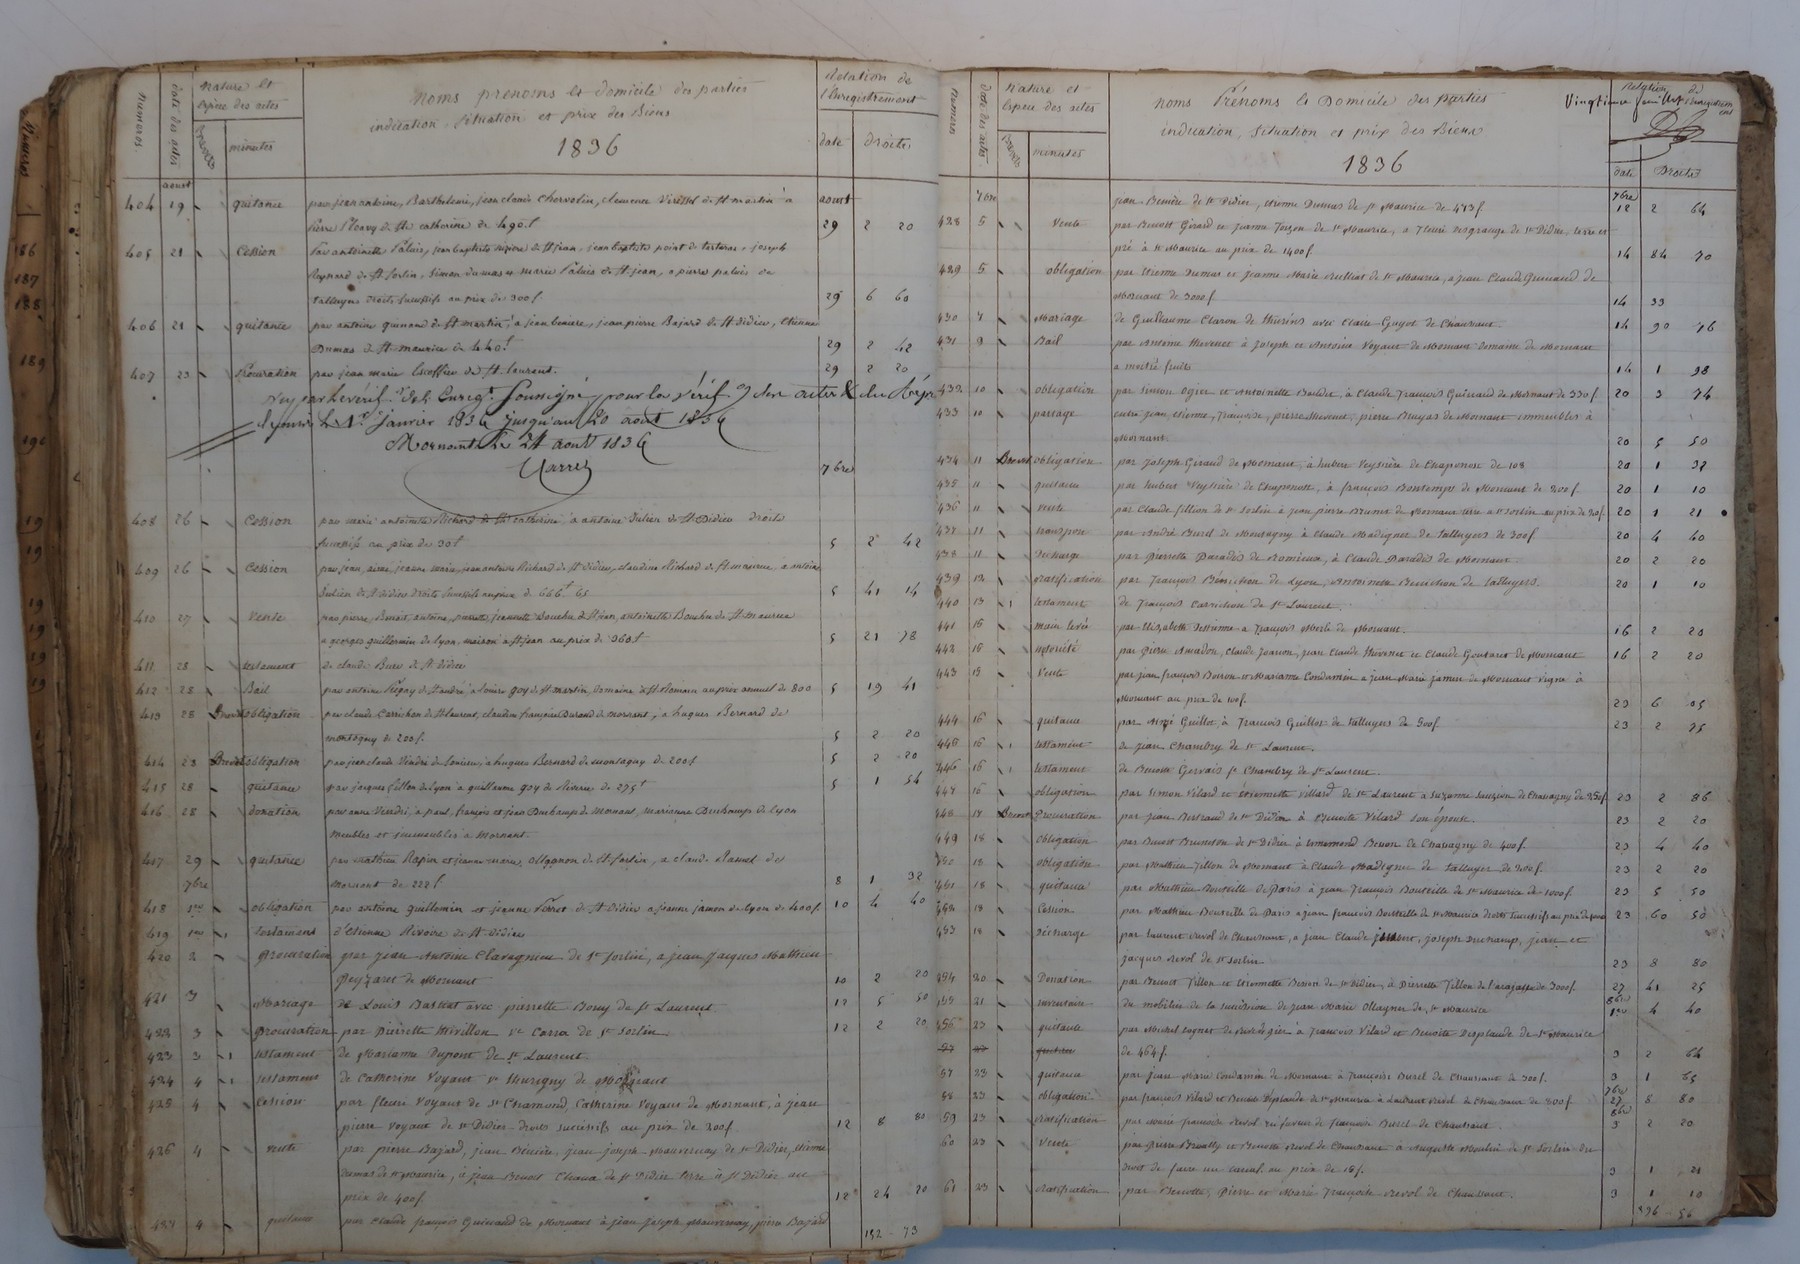 numéros
date des actes
nature et
espèce des actes
Brevets
minutes
noms prénoms et domicile des parties
indication, situation et prix des Biens
1836
Relation de
l'Enregistrement
date
droits
aoust
404 19 quitance par jean antoine, Barthelemi, jean claude Chervolin, clemence de St martin à aoust
Pierre Fleury de Ste catherine de 490f 29 2 20
405 21 Cession Par antoinette Palais, jean baptiste de St jean, jean baptiste de tartaras, joseph
Raynard de St Sorlin, Simon dumas et marie Palais de St jean, a pierre palais de
talluyers droits successifs au prix de 300f. 29 6 60
406 21 quitance par antoine guinand de St martin, a jean beniere, jean pierre Bajard de St didier, Etienne
Dumas de St maurice de 440f 29 2 42
407 23 Procuration par jean marie Escoffier de St laurent. 29 2 20
soussigné, pour la vérif. des actes & du Répre
le 1er janvier 1836 jusqu'au 20 aout 1836
Mornant le 21 aout 1836
7bre
408 26 Cession par marie antoinette Richard de Ste catherine a antoine Julien de St Didier droits
successifs au prix de 30f 5 2 42
409 26 Cession par jean, aimé, jeanne marie, jean antoine Richard de St didier, claudine Richard de St maurice, a antoine
Julien de St didier droits successifs au prix de 666f 65 5 41 14
410 27 Vente par pierre, Benoit, antoine, pierrette, jeannette Bouchu de St jean, antoinette Bouchu de St maurice
a georges guillermin de lyon, maison a St jean au prix de 360f 5 21 78
411 28 testament de claude Bure de St didier
412 28 Bail par antoine Pigny de St andré a louise goy de St martin, domaine a St Romain au prix annuel de 800 5 19 41
413 28 Brevet obligation par claude Carrichon de St laurent, claudine françoise Durand de mornant, a hugues Bernard de
montagny de 200f. 5 2 20
414 23 Brevet obligation par jean claude Vindry de Soucieu, a hugues Bernard de montagny de 200f 5 2 20
415 28 quitance par jacques fillon de lyon a guillaume goy de Riverie de 275f 5 1 54
416 28 donation par anne Verdri, a paul, françois et jean Duchamp de mornant, marianne Duchamp de lyon
meubles et immeubles à Mornant.
417 29 quitance par mathieu Rapin et jeanne marie Ollagnon de St Sorlin, a claude Ramel de
7bre mornant de 222f 8 1 32
418 1er obligation par antoine guillemin et jeanne Verrot de St didier a jeanne jamen de lyon de 400f. 10 4 40
419 1er testament d'Etienne Rivoire de St didier
420 2 Procuration par Jean Antoine Claragnieu de St Sorlin, a jean jacques Mathieu
Peyzaret de Mornant 10 2 20
421 3 Mariage de Louis Bastiat avec pierrette Bouy de St Laurent 12 5 50
422 3 Procuration par Pierrette Mirillon ve Carra de St Sorlin 12 2 20
423 3 testament de Marianne Dupont de St Laurent
424 4 testament de Catherine Voyant ve Thurigny de Mornant
425 4 Cession par fleuri Voyant de St Chamond, Catherine Voyant de Mornant, à jean
pierre Voyant de St Didier droits successifs au prix de 200f. 12 8 80
426 4 vente par pierre Bajard, jean Bénière, jean joseph Mauvernay de St Didier, etienne
Dumas de St Maurice, à jean Benoit de St Didier terre à St Didier au
prix de 400f 12 24 20
427 4 quitance par Claude françois Guinand de Mornant à jean joseph Mauvernay, pierre Bajard
192 - 73
Numeros
date des actes
nature et
espece des actes
Brevets
minutes
noms Prénoms et Domicile des parties
indication, situation et prix des Biens
1836
Vingtieme feuillet
Relation de
l'enregistrement
date
Droits
7bre jean Beniere de St Didier, etienne Dumas de St Maurice de 473f 7bre 12 2 64
428 5 Vente par Benoit Girard et jeanne de St Maurice, a fleuri Desgrange de St Didier, terre et
pré à St Maurice au prix de 1400f. 14 84 70
429 5 obligation par Etienne Dumas et Jeanne Marie de St Maurice, a jean Claude Guinand de
Mornant de 3000f 14 33
430 7 Mariage de Guillaume Claron de Thurins avec Claire Guyot de Chaussant. 14 30 76
431 9 Bail par Antoine Thevenet à Joseph et Antoine Voyant de Mornant domaine de Mornant
a moitié fruits 14 1 98
432 10 obligation par Simon Ogier et Antoinette Bardet, à Claude François Guinand de Mornant de 330f 20 3 74
433 10 partage entre jean, etienne, françoise, pierre thevenet, pierre Bruyas de Mornant immeubles à
Mornant. 20 5 50
434 11 Brevet obligation par Joseph Giraud de Mornant, à hubert Veyssière de Chaponost de 108 20 1 32
435 11 quitance par hubert Veyssière de Chaponost, à françois Bontemps de Mornant de 200f. 20 1 10
436 11 vente par Claude fillion de St Sorlin à jean pierre Brunet de Mornant terre a St Sorlin au prix de 20f. 20 1 21
437 11 transport par André Burel de Montagny à Claude Madignier de talluyers de 300f. 20 4 40
438 11 Decharge par Pierrette Paradis de Bomieux, à Claude Paradis de Mornant. 20 2 20
439 12 ratification par françois Benichon de Lyon, Antoinette Benichon de talluyers. 20 1 10
440 13 testament de françois Carrichon de St Laurent.
441 15 main levée par Elizabeth Dessienne a françois Merle de Mornant. 16 2 20
442 15 notoriété par Pierre Amadou, Claude Joanon, jean Claude Thevenet et Claude Goutaret de Mornant 16 2 20
443 15 Vente par jean françois Boiron et Marianne Condamin a jean Marie jamen de Mornant vigne à
Mornant au prix de 100f. 23 6 05
444 16 quitance par Aimé Guillot à françois Guillot de talluyers de 500f. 23 2 75
445 16 testament de jean Chambry de St Laurent.
446 16 testament de Benoite Gervais fe Chambry de St Laurent.
447 16 obligation par Simon Vilard et Etiennette Villard de St Laurent a Suzanne de Chassagny de 260f. 23 2 86
448 17 Brevet Procuration par jean Bertrand de St Didier à Benoite Vilard son épouse. 23 2 20
449 18 obligation par Benoit Bruneton de St Didier à Ennemond Besson de Chassagny de 400f. 23 4 40
450 18 obligation par Mathieu fillon de Mornant à Claude Madignier de talluyer de 200f. 23 2 20
451 18 quitance par Mathieu Bouteille de Paris à jean françois Bouteille de St Maurice de 1000f. 23 5 50
452 18 Cession par Mathieu Bouteille de Paris a jean françois Bouteille de St Maurice droits successifs au prix de 23 60 50
453 18 décharge par Laurent Revol de Chaussant, a jean Claude, Joseph Duchamp, jean et
jacques Revol de St Sorlin 23 8 80
454 20 Donation par Benoit fillon et Etiennette Besson de St Didier, à Pierrette fillon de l'arajasse de 3000f. 27 41 25
455 21 inventaire du mobilier de la succession de jean Marie Ollagnier de St Maurice 8bre 1er 4 40
456 23 quitance par Michel Soynet de à françois Vilard et Benoite Desplande de St Maurice
57 23 quitance de 464f. 3 2 64
57 23 quitance par jean Marie Condamin de Mornant à françoise Burel de Chaussant de 300f. 3 1 65
58 23 obligation par françois Vilard et Benoite Desplande de St Maurice à Laurent Revol de Chaussant de 800f 7bre 27 8 80
59 23 ratification par Marie françoise Revol en faveur de françoise Burel de Chaussant. 8bre 3 2 20
60 23 Vente par Pierre et Benoite Revol de Chaussant à Auguste Moulin de St Sorlin du
droit de faire un au prix de 15f. 3 1 21
61 23 ratification par Benoite, Pierre et Marie françoise Revol de Chaussant. 3 1 10
396 - 56
86
187
188
189
190
19
19
19
19
19
19